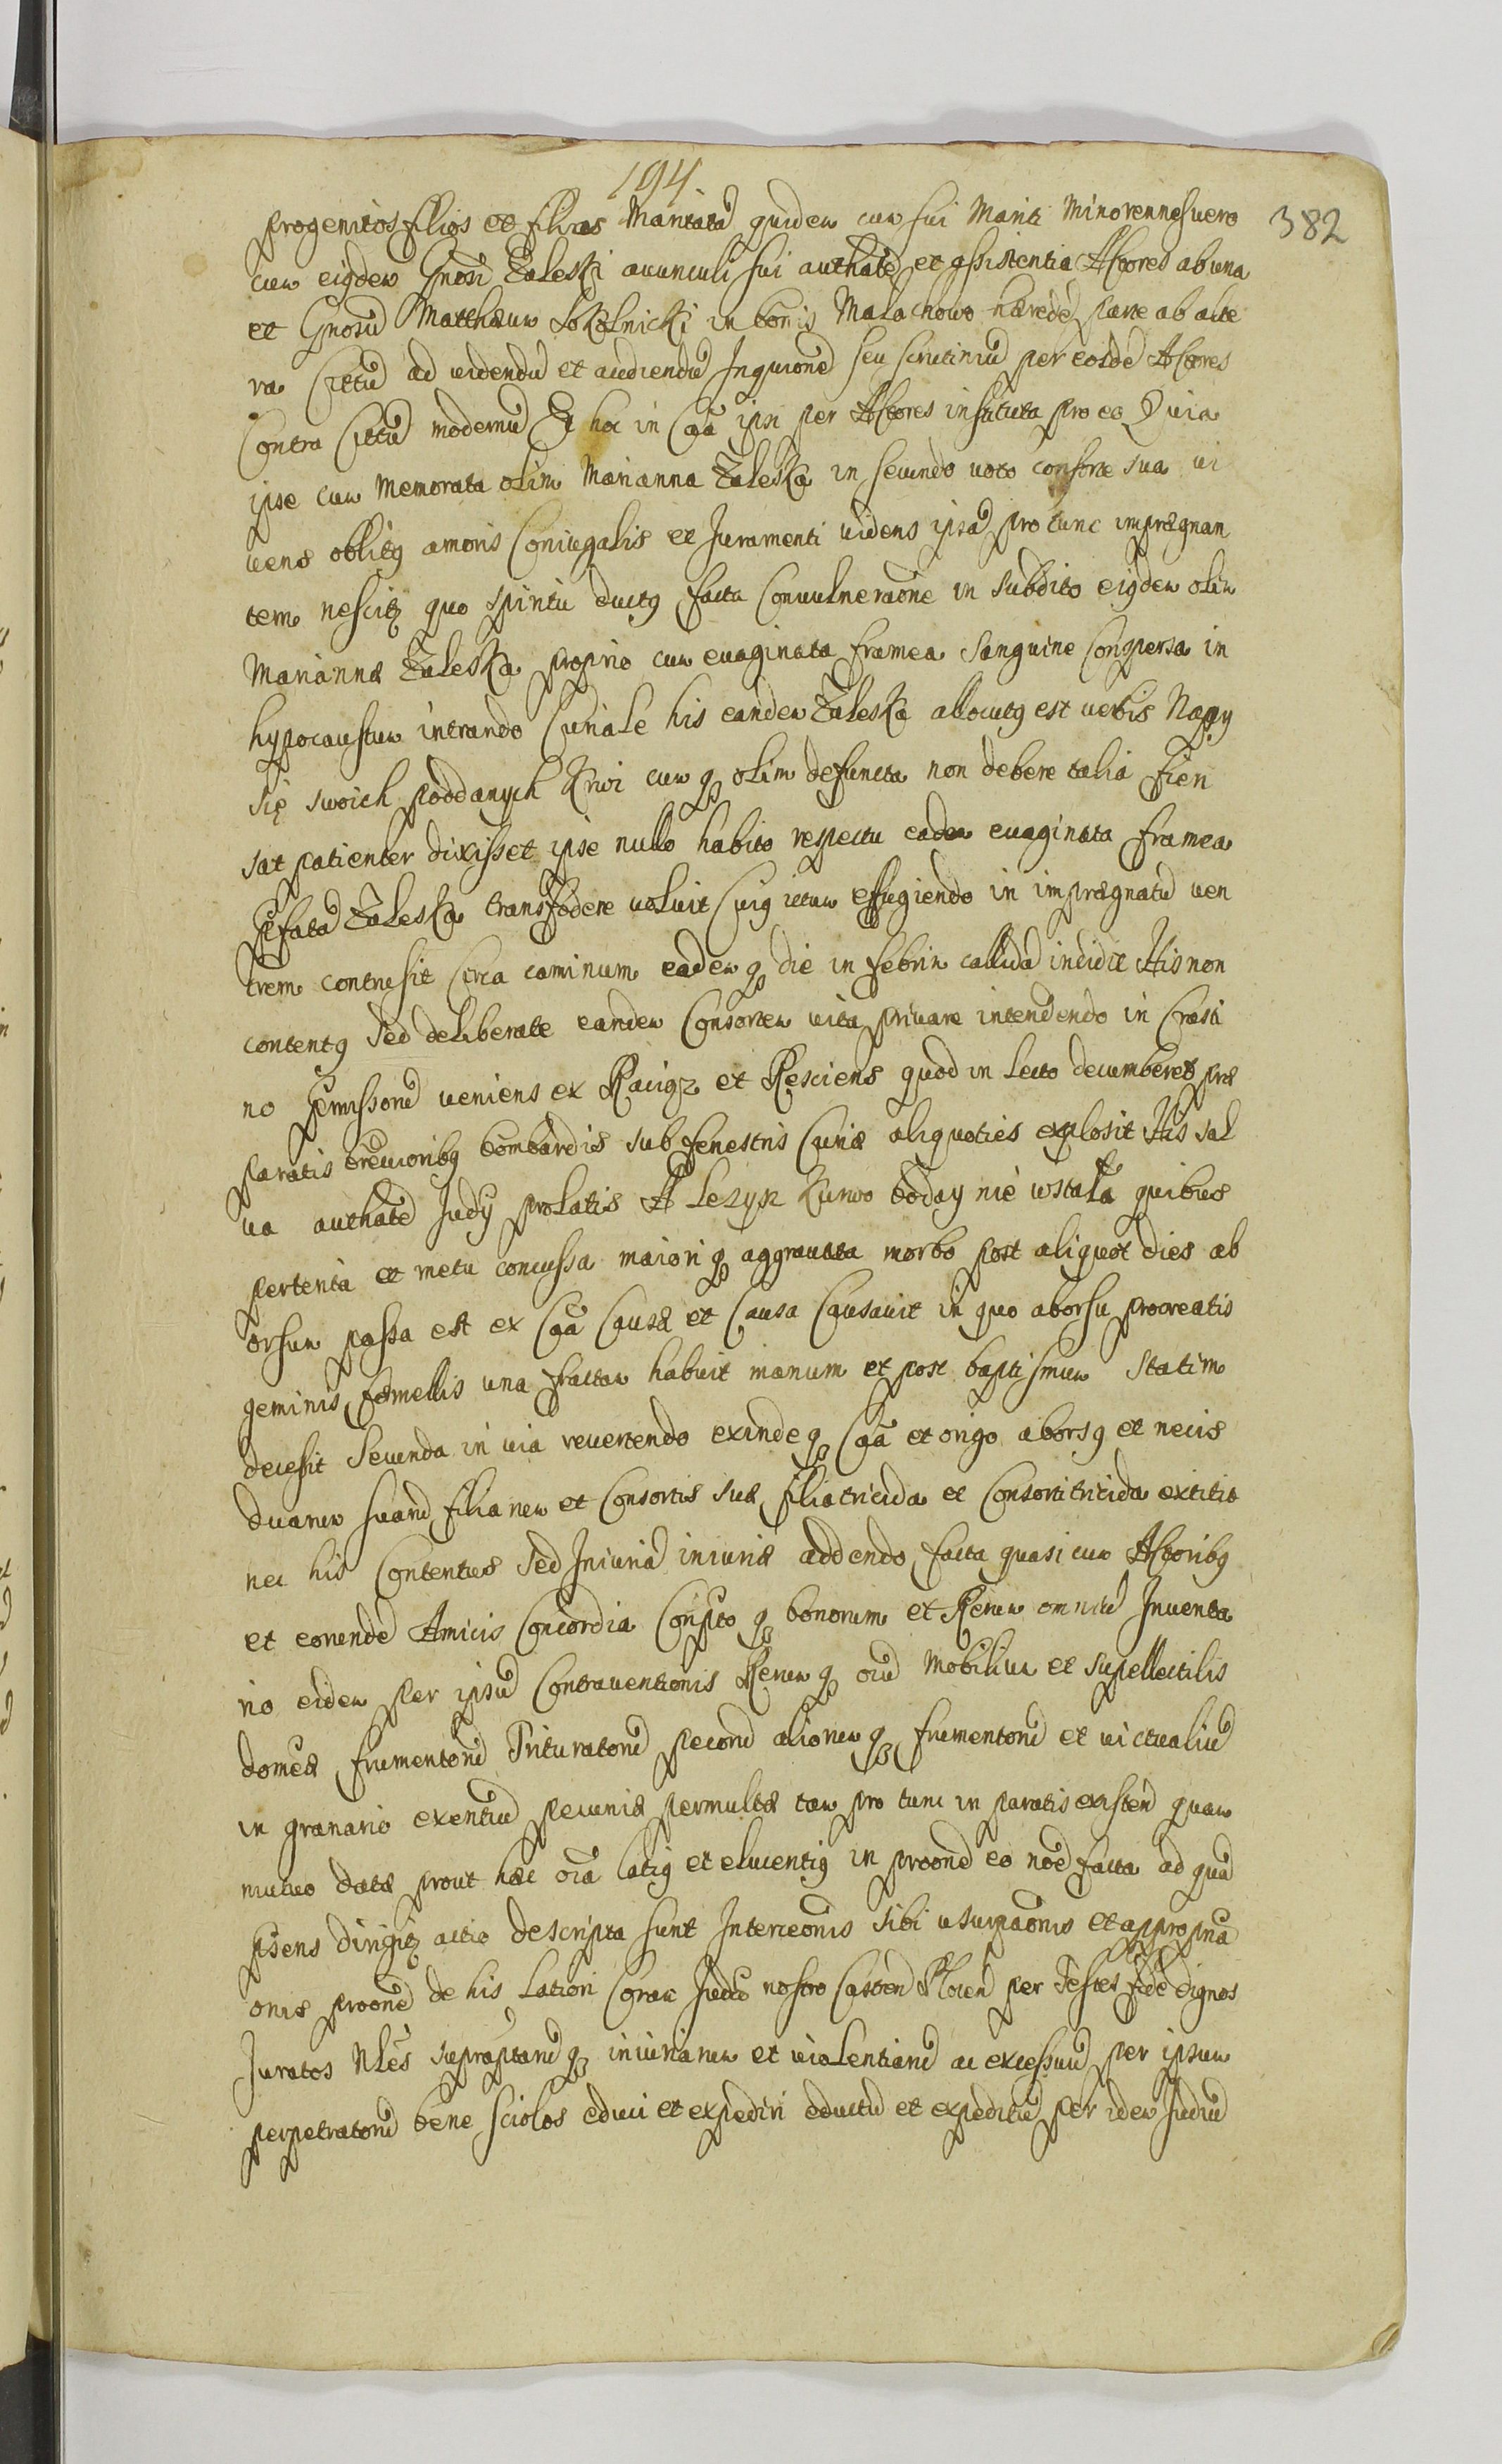 194
progenitos filios et filias Maritatã quidem cum sui Mariti Minorennes uero 382
cum eiusdem Gnosi Zaleski auunculi sui authatẽ et assistentia Actores ab una
et Gnosũ Matthæum Sokolnicki in bonis Malachowo hæredẽ parte ab alte
ra Cittũ ad uidendũ et audiendũ Inquionẽ seu scrutiniũ per eosdẽ Actores
Contra Cittũ modernũ Ex hoc in Cãa ipsi per Actores instituta pro eo Quia
ipse cum Memorata olim Marianna Zaleska in secundo uoto consorte sua ui
uens oblitq amoris Coniugalis et Juramenti uidens ipsã pro tunc imprægnan
tem nescitq quo spiritu ductq facta Conuulneraõne in subdito eiqdem olim
Mariannæ Zaleska proprio cum euaginata framea sanguine Conspersa in
hypocaustum intrando Curiale his eandem Zaleska allocutq est uerbis Napiy
się swoich poddanych Krwi cum q olim defuncta non debere talia fieri
sat patienter dixisset ipse nullo habito respectu eadem euaginata framea
Pfatã Zaleska transfodere uoluit Cuiq ictum effugiendo in imprægnatũ uen
trem contresit Circa caminum eadem q die in febrim callidã incidit His non
contentq Sed deliberate eandem Consortem uita priuare intendendo in Crasti
no ueniens ex et Resciens quod in lecto decumberet præ
paratis breuioribq bombardis sub fenestris Curiæ aliquoties explosit His sal
ua authatẽ Judÿ prolatis A lezysz Kurwo boday nie wstała quibus
perterita et metu concussa maiori q aggrauata morbo post aliquot dies ab
orsum passa est ex Cãa Causæ et Causa Causauit in quo aborsu procreatis
geminis femellis una fractam habuit manum et post baptismum statim
decessit Secunda in uia reuertendo exinde q Cãa et origo aborsq et necis
duarum suarũ filiarum et Consortis suæ filiatricida et Consortitricida extitit
nec his Contentus Sed Iniuriã iniuriæ addendo facta quasi cum Actoribq
et eorundẽ Amicis Concordia Conspto q bonorum et Rerum omniũ Inuenta
rio eidem per ipsũ Contrauentionis Rerum q oiũ Mobilium et supellectilis
domcæ frumentorũ Trituratorũ pecorũ aliorum q frumentorũ et uictualiũ
in granario exentiũ pecuniæ permultæ tam pro tunc in paratis existẽn quam
mutuo datæ prout hæc oĩa latiq et elucentiq in proonẽ eo noẽ facta ad quã
psens dirigitq actio descripta sunt Interceonis sibi usurpaõnis et appropriã
onis proonẽ de his latiori Coram Judio nostro Castrẽn Plocẽn per Testes fide dignos
Juratos Nlẽs supraptarũ q iniuriarum et uiolentiarũ ac excessuũ per ipsum
perpetratorũ bene sciolos educi et expediri eductũ et expeditũ per idem Judiũ